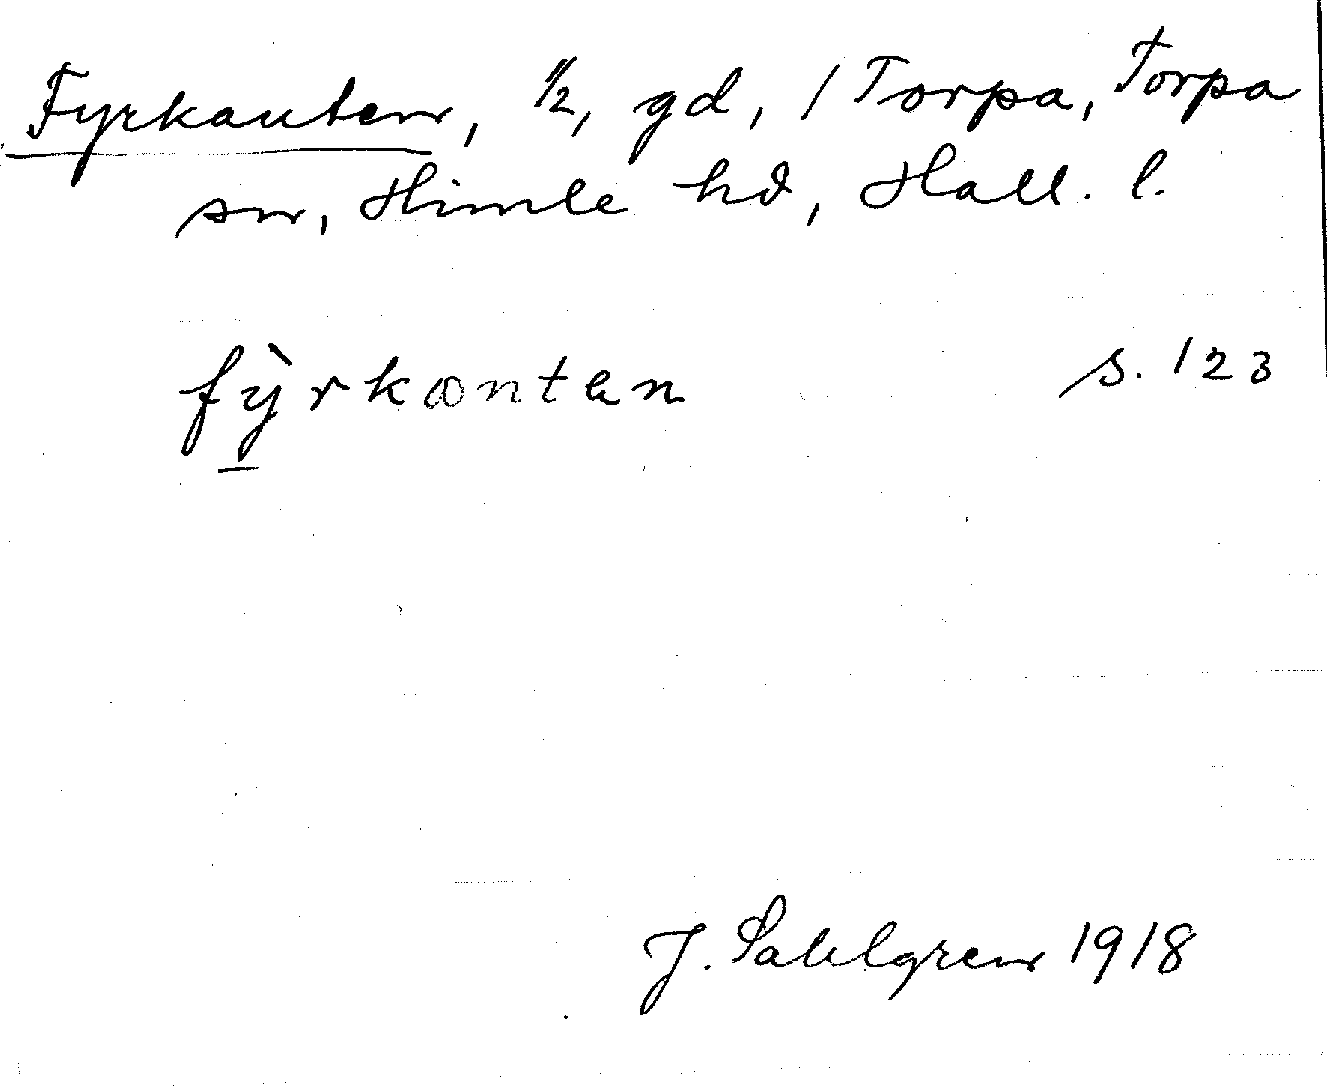 Fyrkanten, 1/2, gd, 1 Torpa, Torpa
sn, Himle hd, Hall. l.
fỳ̠rkantan s. 123
J. Sahlgren 1918